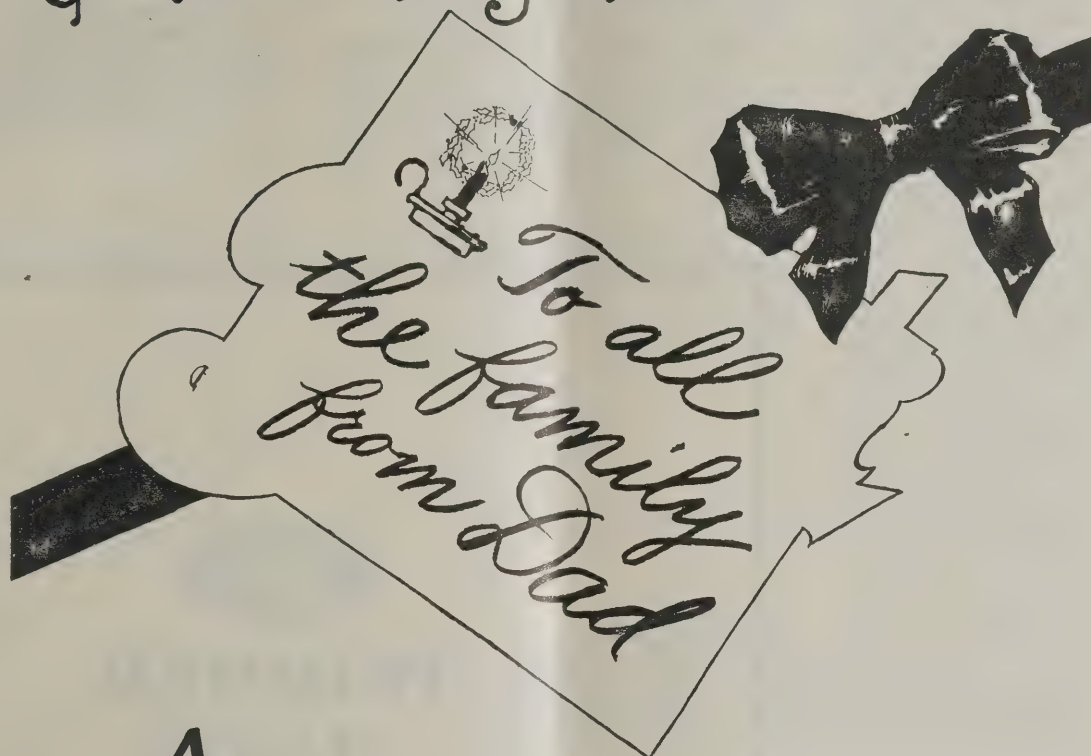 To all
the family
from Dad